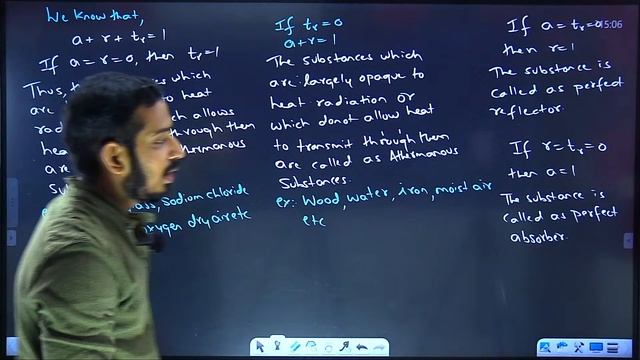 We know that,
a + r + tr = 1
If a = r = 0, then tr = 1
Thus, which
are to heat
rad which allows
hea through them
are
Su
ass, Sodium chloride
oxygen dry air etc
If tr = 0
a + r = 1
The substances which
are largely opaque to
heat radiation or
which donot allow heat
to transmit through them
are called as Athermanous
Substances.
ex:- Wood, water, iron, moist air
etc
If a = tr = 0
then r = 1
The substance is
called as perfect
reflector.
If r = tr = 0
then a = 1
The substance is
called as perfect
absorber.
15:06